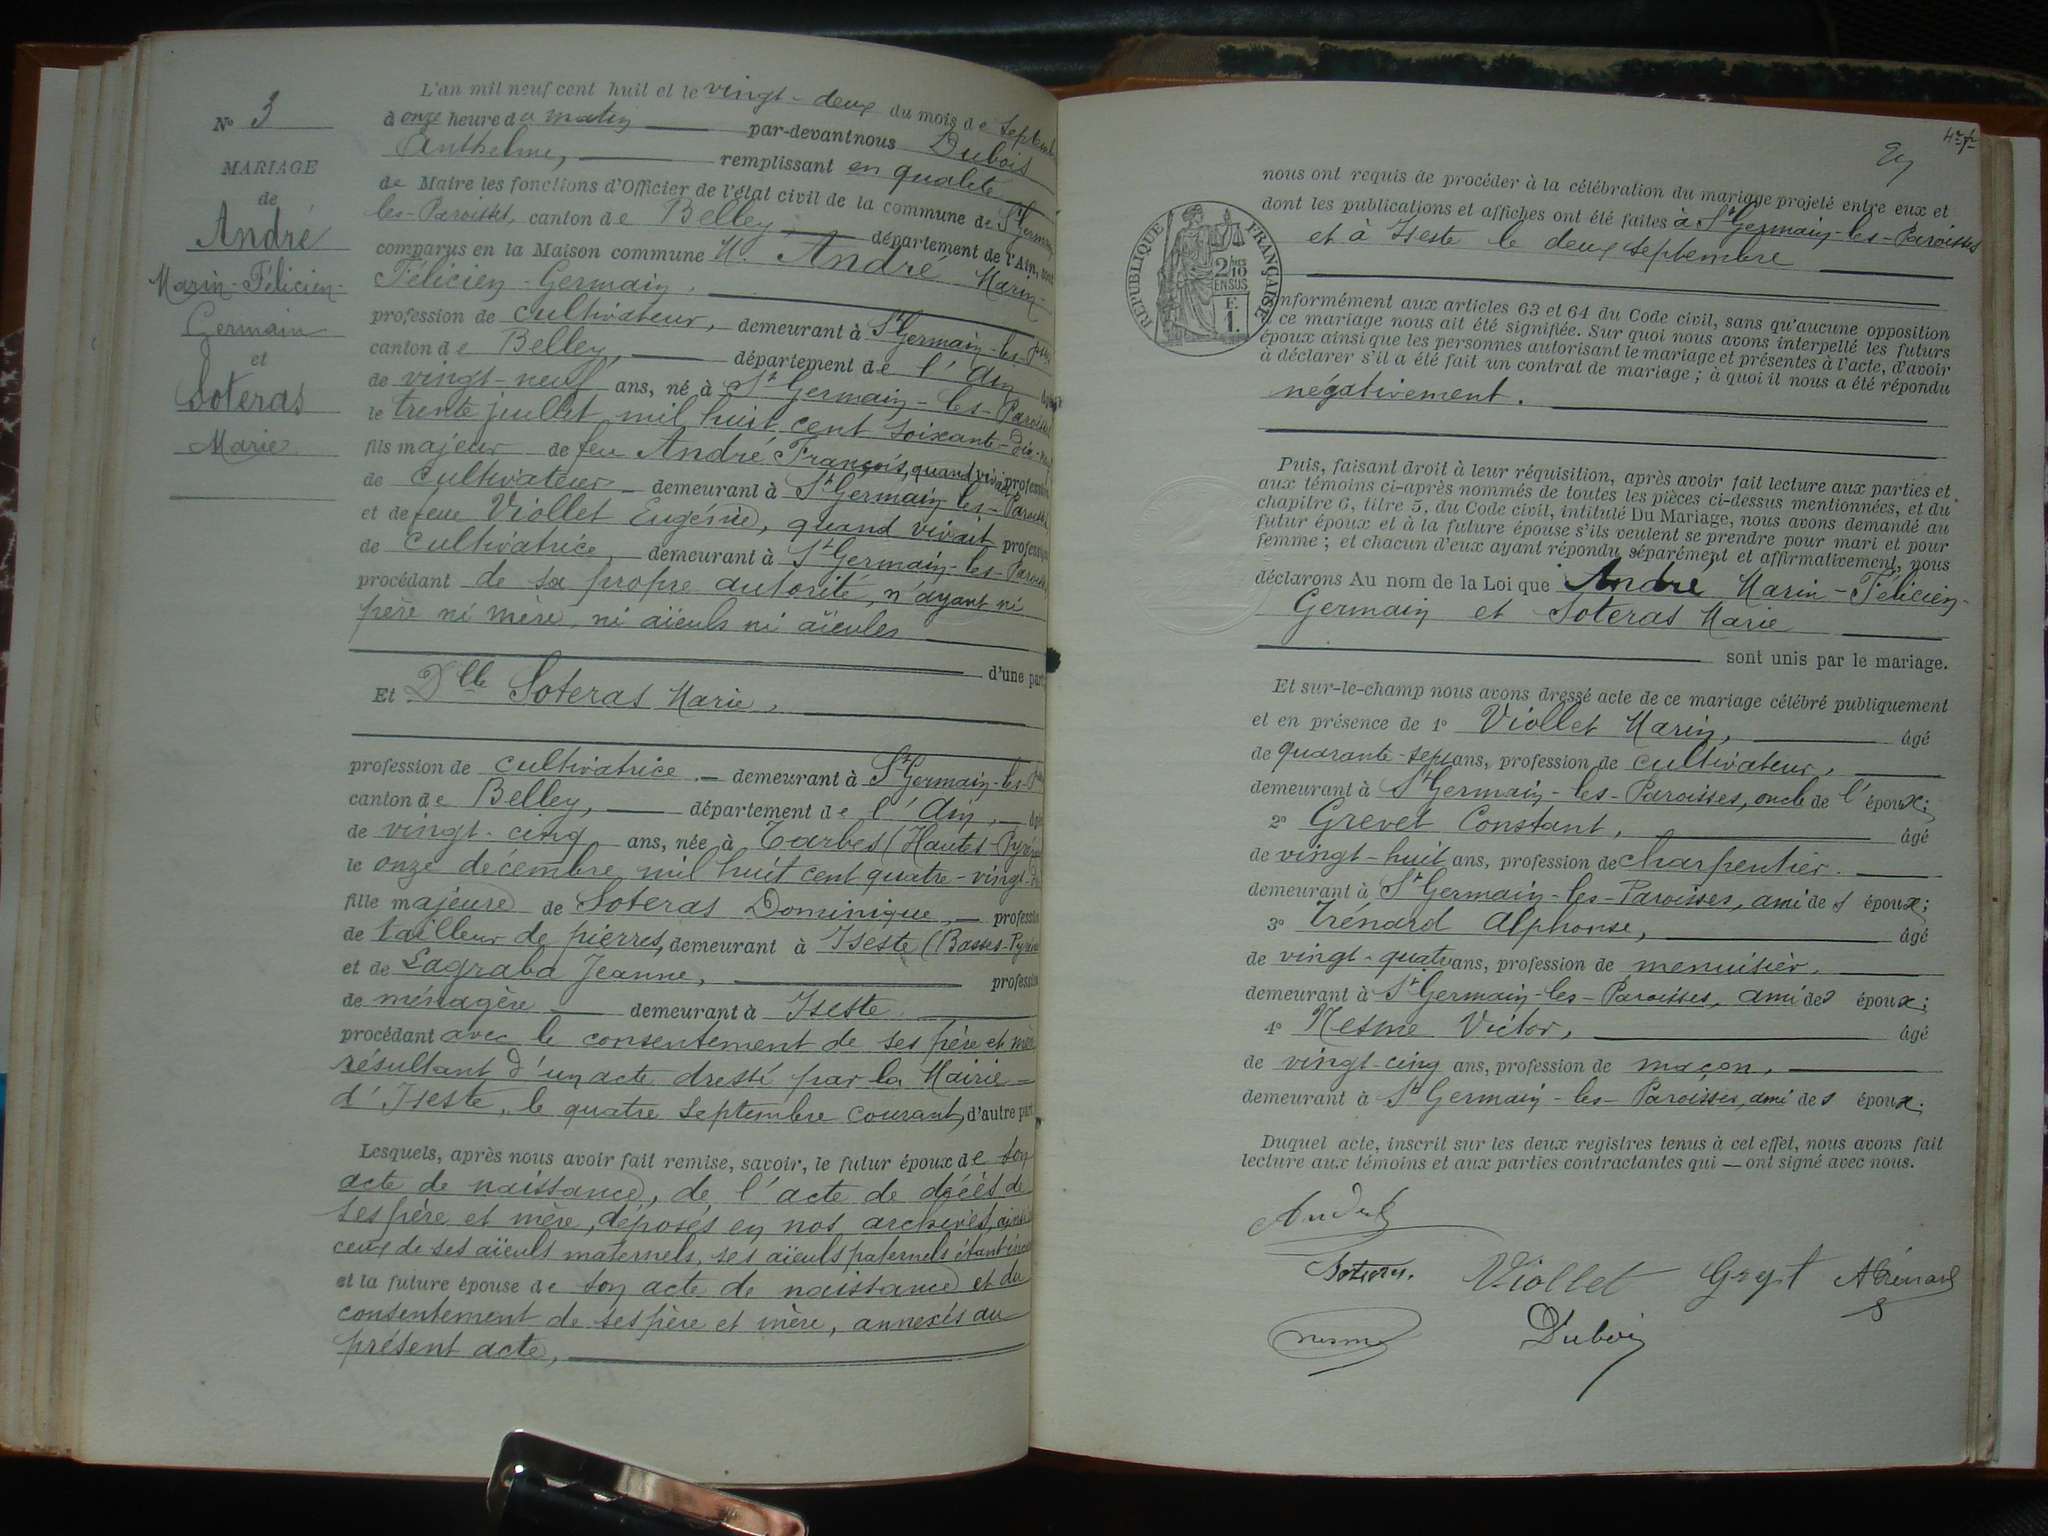 N° 3
MARIAGE
de
André
Marin-Félicien-
Germain
et
Soteras
Marie
L'an mil neuf cent huit et le vingt-deux du mois de Septembre
à onze heure du matin par-devant nous Dubois
Anthelme, remplissant en qualité
de Maire les fonctions d'Officier de l'état civil de la commune de St Germain
les-Paroisses, canton de Belley, département de l'Ain, sont
comparus en la Maison commune M. André Marin-
Félicien-Germain,
profession de cultivateur, demeurant à St Germain-les-
canton de Belley, département de l'Ain
de vingt-neuf ans, né à St Germain-les-Paroisses
le trente juillet mil huit cent soixante-dix-neuf
fils majeur de feu André François, quand vivait profession
de cultivateur demeurant à St Germain-les-Paroisses
et de feue Viollet Eugénie, quand vivait profession
de cultivatrice, demeurant à St Germain-les-Paroisses,
procédant de sa propre autorité, n'ayant ni
père ni mère, ni aïeuls ni aïeules
d'une part
Et Dlle Soteras Marie,
profession de cultivatrice demeurant à St Germain-les-
canton de Belley, département de l'Ain,
de vingt-cinq ans, née à Tarbes (Hautes-Pyrénées
le onze décembre mil huit cent quatre-vingt-
fille majeure de Soteras Dominique, profession
de tailleur de pierres, demeurant à Iseste (Basses-Pyrénées
et de Lagraba Jeanne, profession
de ménagère demeurant à Iseste
procédant avec le consentement de ses père et mère
résultant d'un acte dressé par la Mairie
d'Iseste, le quatre Septembre courant, d'autre part
Lesquels, après nous avoir fait remise, savoir, le futur époux de son
acte de naissance, de l'acte de décès de
ses père et mère, déposés en nos archives, ainsi
ceux de ses aïeuls maternels, ses aïeuls paternels étant
et la future épouse de son acte de naissance et du
consentement de ses père et mère, annexés au
présent acte,
nous ont requis de procéder à la célébration du mariage projeté entre eux et
dont les publications et affiches ont été faites à St Germain-les-Paroisses
et à Iseste le deux septembre
RÉPUBLIQUE FRANÇAISE
2/10
EN SUS
F.
1.
conformément aux articles 63 et 64 du Code civil, sans qu'aucune opposition
à ce mariage nous ait été signifiée. Sur quoi nous avons interpellé les futurs
époux ainsi que les personnes autorisant le mariage et présentes à l'acte, d'avoir
à déclarer s'il a été fait un contrat de mariage ; à quoi il nous a été répondu
négativement.
Puis, faisant droit à leur réquisition, après avoir fait lecture aux parties et
aux témoins ci-après nommés de toutes les pièces ci-dessus mentionnées, et du
chapitre 6, titre 5, du Code civil, intitulé Du Mariage, nous avons demandé au
futur époux et à la future épouse s'ils veulent se prendre pour mari et pour
femme ; et chacun d'eux ayant répondu séparément et affirmativement, nous
déclarons Au nom de la Loi que André Marin-Félicien-
Germain et Soteras Marie
sont unis par le mariage.
Et sur-le-champ nous avons dressé acte de ce mariage célébré publiquement
et en présence de 1° Viollet Marin, âgé
de quarante-sept ans, profession de cultivateur,
demeurant à St Germain-les-Paroisses, oncle de l'époux;
2° Grevet Constant, âgé
de vingt-huit ans, profession de charpentier
demeurant à St Germain-les-Paroisses, ami des époux;
3° Trénard Alphonse, âgé
de vingt-quatre ans, profession de menuisier,
demeurant à St Germain-les-Paroisses, ami des époux;
4° Nesme Victor, âgé
de vingt-cinq ans, profession de maçon,
demeurant à St Germain-les-Paroisses, ami des époux.
Duquel acte, inscrit sur les deux registres tenus à cet effet, nous avons fait
lecture aux témoins et aux parties contractantes qui — ont signé avec nous.
André
Soteras. Viollet Grevet A Trénard
nesme Dubois